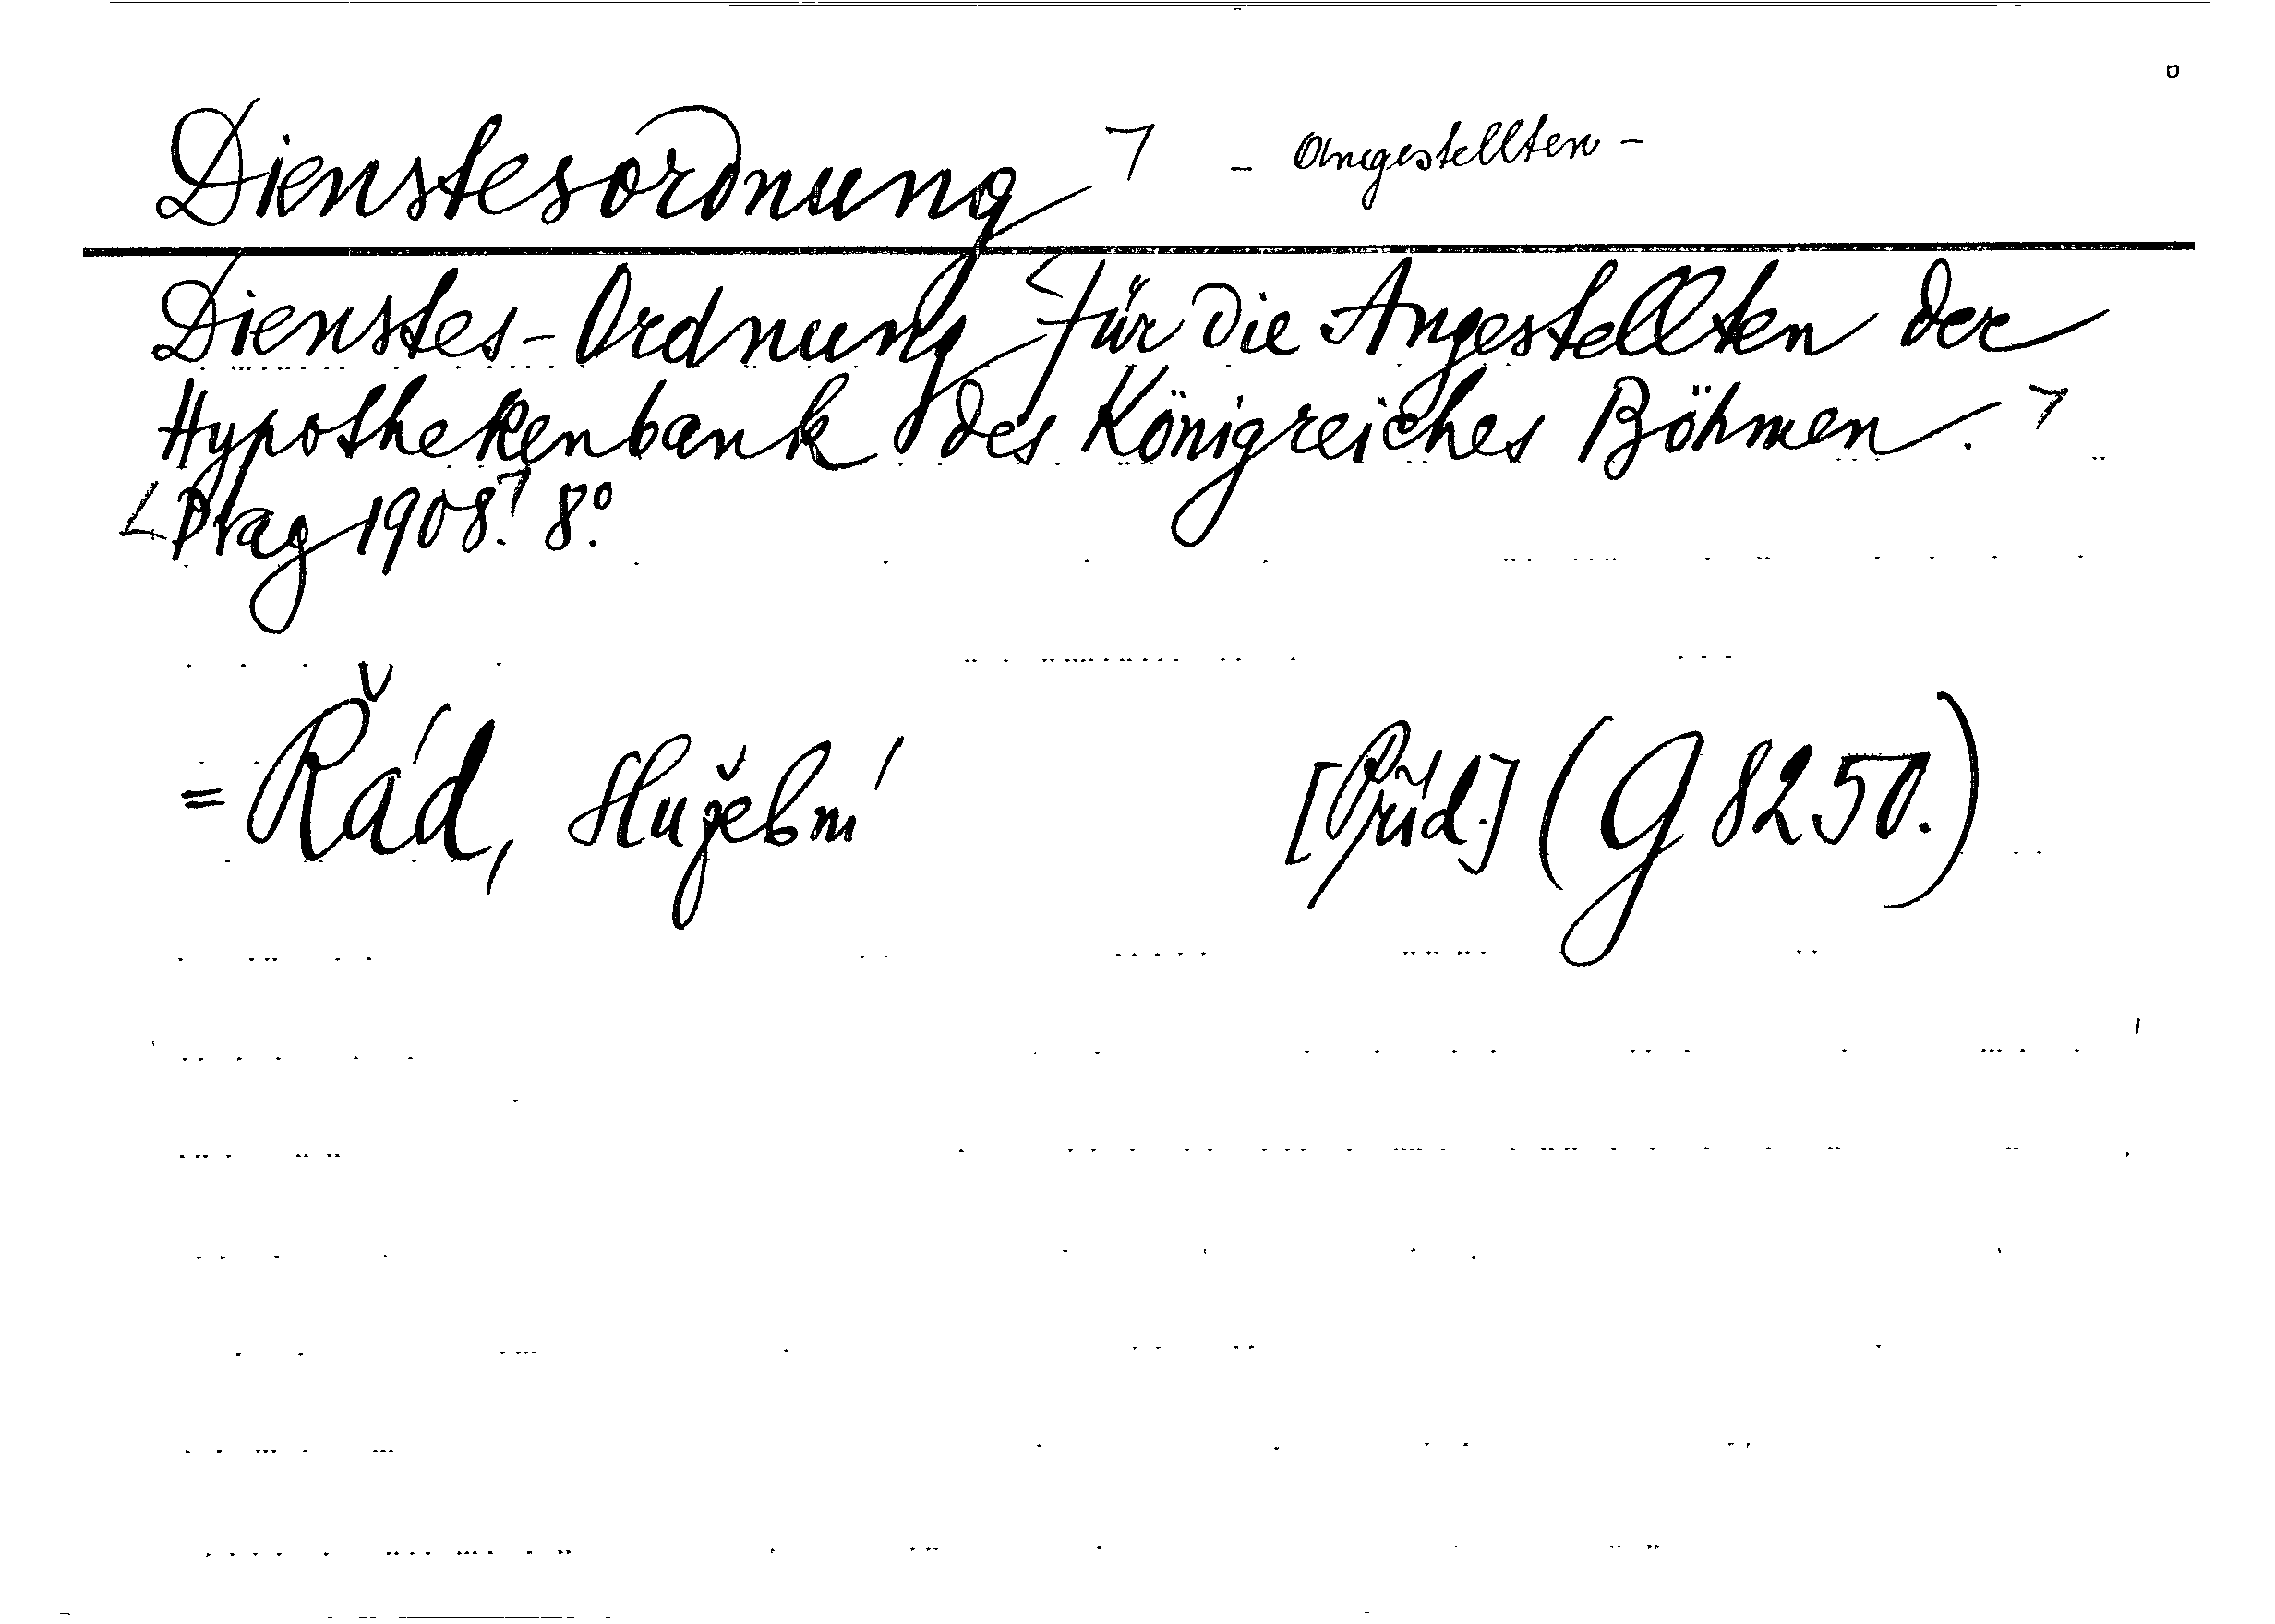 Dienstesordnung ⌝ - Angestellten -
Dienstes-Ordnung <für die Angestellten der
Hypothekenbank des Königreiches Böhmen. ⌝
<Prag 1908.⌝ 8°.
= Řád, služební [Příd.] (G 8250.)